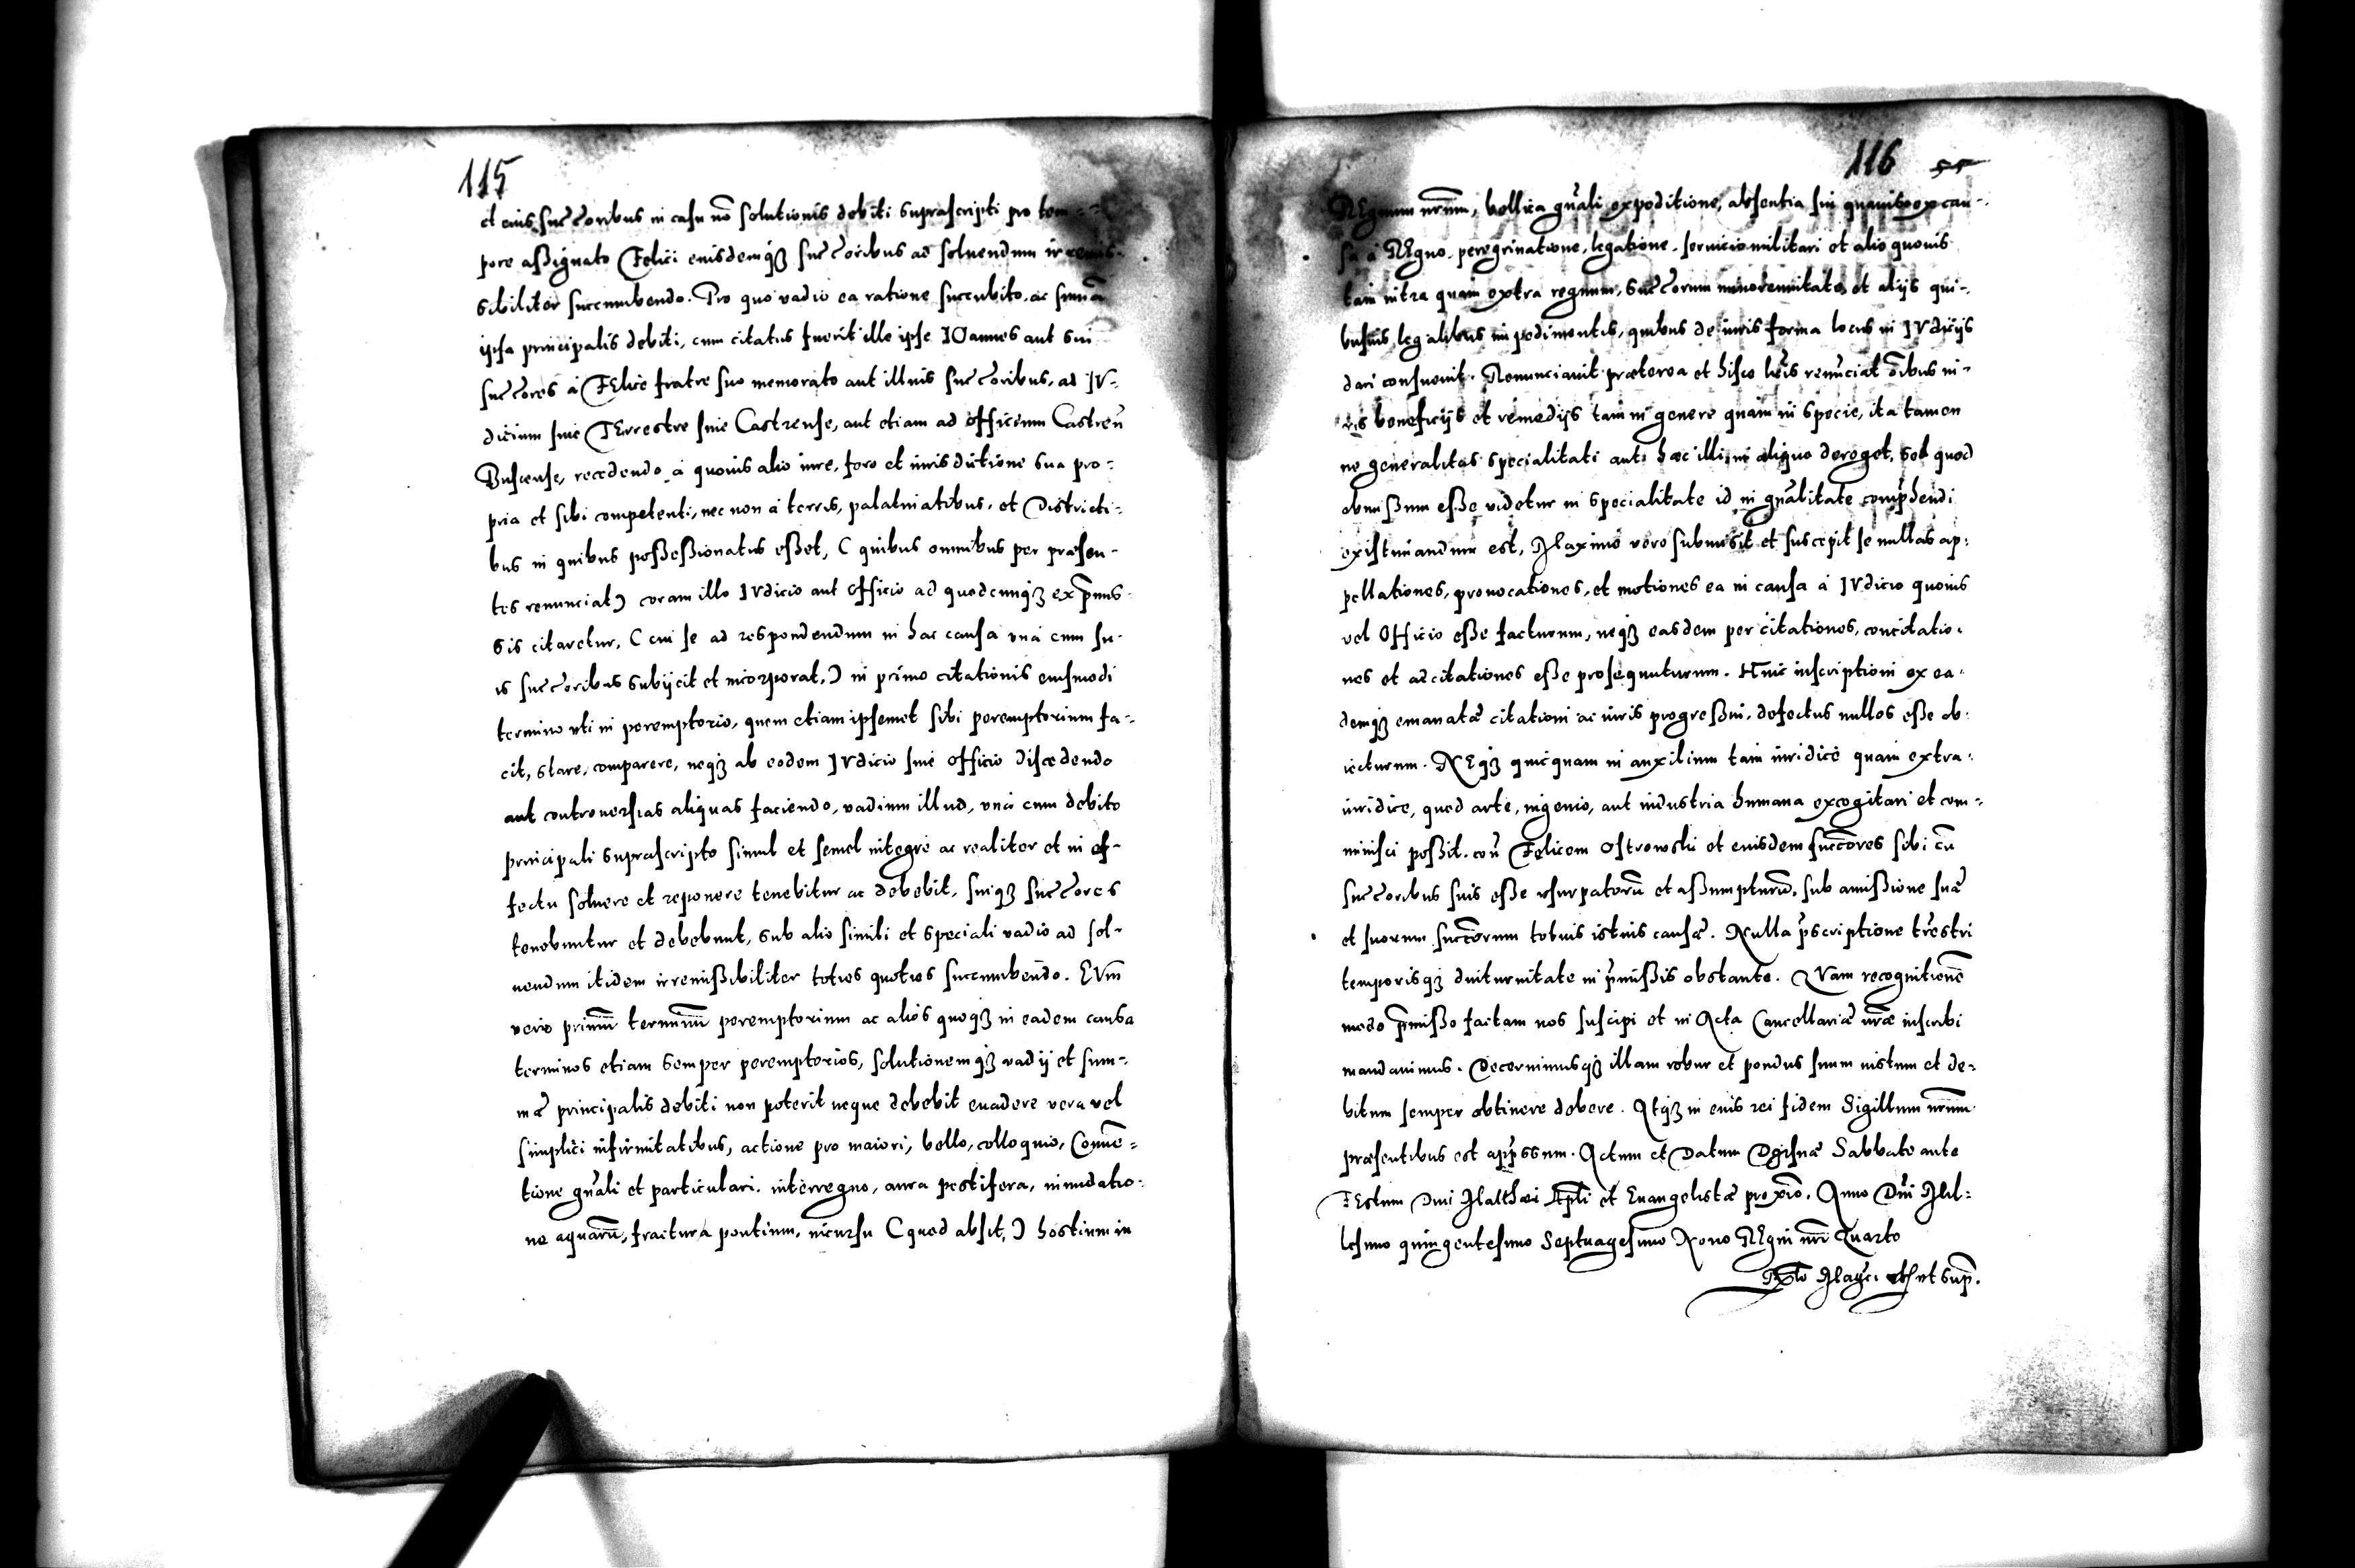 115
et eius succ̄oribus in casu nō solutionis debiti suprascripti pro tem=
pore assignato Felici eiusdemq̃ succ̄oribus ad soluendum irremis-
sibiliter succumbendo. Pro quo vadio ea ratione succubito, ac summa
ipsa principalis debiti, cum citatus fuerit ille ipse IOannes aut sui
succ̄ores à FElice fratre suo memorato aut illius succ̄oribus, ad IV-
dicium siue TErrestre siue Castrense, aut etiam ad officium Castren̄
Buscense, recedendo à quouis alio iure, foro et iurisdictione sua pro=
pria et sibi competenti, nec non à terris, palatinatibus, et Districti=
bus in quibus possessionatus esset, ( quibus omnibus per præsen-
tes renunciat) coram illo IVdicio aut officio ad quodcunq̃ ex p̄mis-
sis citaretur, ( cui se ad respondendum in hac causa vnà cum su-
is succ̄oribus subijcit et incorporat,) in primo citationis eiusmodi
termino vti in peremptorio, quem etiam ipsemet sibi peremptorium fa=
cit, stare, comparere, neq̃ ab eodem IVdicio siue officio discedendo
aut controuersias aliquas faciendo, vadium illud, vnà cum debito
principali suprascripto simul et semel integrè ac realiter et in ef-
fectu soluere et reponere tenebitur ac debebit, suiq̃ succ̄ores
tenebuntur et debebunt, sub alio simili et speciali vadio ad sol-
uendum itidem irremissibiliter toties quoties succumbendo. EVm
vero primū terminū peremptorium ac alios quoq̃ in eadem causa
terminos etiam semper peremptorios, solutionemq̃ vadij et sum-
mæ principalis debiti non poterit neque debebit euadere vera vel
simplici infirmitatibus, actione pro maiori, bello, colloquio, Conuē=
tione gn̄ali et particulari, interregno, aura pestifera, inundatio-
ne aquarū, fractura pontium, incursu ( quod absit,) hostium in
116 55
REgnum nr̄um, bellica gn̄ali expeditione, absentia sui quauis ex cau-
sa à REgno, peregrinatione, legatione, seruicio militari et alio quouis
tam intra quam extra regnum, succ̄orum minorennitate et alijs qui-
busuis legalibus impedimentis, quibus de iuris forma locus in IVdicijs
dari consueuit. Renunciauit præterea et hisce lr̄is renūciat ōibus iu-
ris beneficijs et remedijs tam in genere quam in specie, ita tamen
ne generalitas specialitati aut hæc illi in aliquo deroget, sed quod
obmissum esse videtur in specialitate id in gn̄alitate comp̄hendi
existimandum est, Maximè vero submisit et suscepit se nullas ap=
pellationes, prouocationes, et motiones ea in causa à IVdicio quouis
vel Officio esse facturum, neq̃ easdem per citationes, concitatio=
nes et adcitationes esse prosequuturum. Huic inscriptioni ex ea=
demq̃ emanatæ citationi ac iuris progressui, defectus nullos esse ob=
iecturum. NEq̃ quicquam in auxilium tam iuridicè quam extra=
iuridice, quod arte, ingenio, aut industria humana excogitari et com=
minisci possit, con̄ Felicem Ostrowski et eiusdem succ̄ores sibi cū
succ̄oribus suis esse vsurpaturū et assumpturū, sub amissione suæ
et suorum succ̄orum totius istius causæ. Nulla p̄scriptione tr̄estri
temporisq̃ diuturnitate in p̄missis obstante. QVam recognitionē
modo p̄misso factam nos suscipi et in Acta Cancellariæ nr̄æ inscribi
mandauimus. Decernimusq̃ illam robur et pondus suum iustum et de=
bitum semper obtinere debere. Atq̃ in eius rei fidem Sigillum nr̄um
præsentibus est app̄ssum. Actum et Datum Grodnæ Sabbato ante
FEstum Diui Matthæi Ap̄li et Euangelistæ proxīo, Anno Dn̄i Mil=
lesimo quingentesimo Septuagesimo Nono REgni nr̄i Quarto